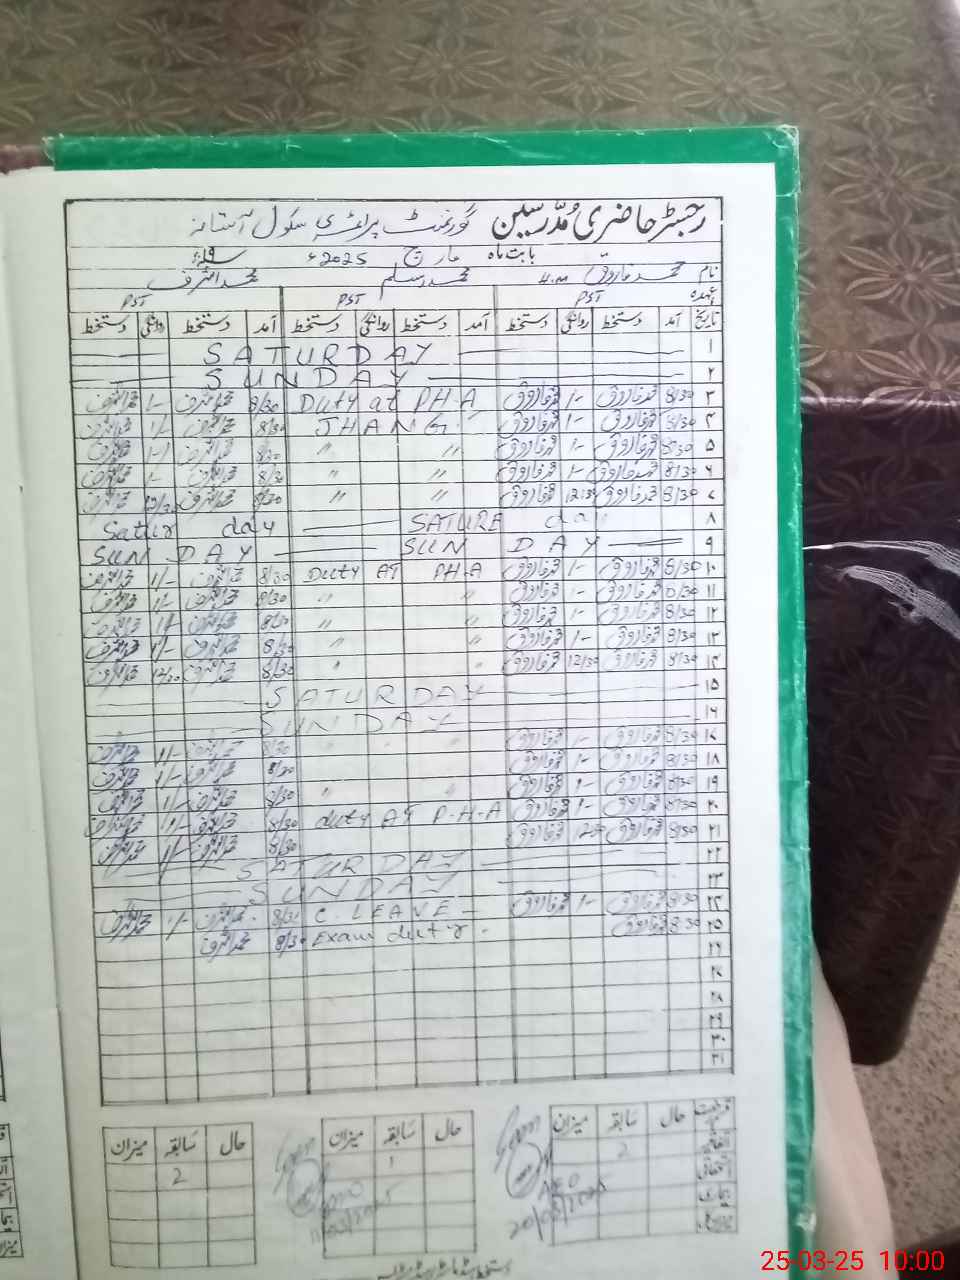 رجسٹر حاضری مُدرسین گورنمنٹ پرائمری سکول آستانہ
بابت ماہ مارچ 2025ء
نام محمد فاروق H.M محمد اسلم محمد اشرف
عہدہ PST PST PST
تاریخ آمد دستخط روانگی دستخط آمد دستخط روانگی دستخط آمد دستخط روانگی دستخط
۱ SATURDAY
۲ SUNDAY
۳ 8/30 محمد فاروق 1/- محمد فاروق Duty at PH-A 8/30 محمد اشرف 1/- محمد اشرف
۴ 8/30 محمد فاروق 1/- محمد فاروق JHANG 8/30 محمد اشرف 1/- محمد اشرف
۵ 8/30 محمد فاروق 1/- محمد فاروق " " 8/30 محمد اشرف 1/- محمد اشرف
۶ 8/30 محمد فاروق 1/- محمد فاروق " " 8/30 محمد اشرف 1/- محمد اشرف
۷ 8/30 محمد فاروق 12/30 محمد فاروق " " 8/30 محمد اشرف 12/30 محمد اشرف
۸ Satur day SATURE day
۹ SUN DAY SUN DAY
۱۰ 8/30 محمد فاروق 1/- محمد فاروق Duty AT PH-A 8/30 محمد اشرف 1/- محمد اشرف
۱۱ 8/30 محمد فاروق 1/- محمد فاروق " " 8/30 محمد اشرف 1/- محمد اشرف
۱۲ 8/30 محمد فاروق 1/- محمد فاروق " " 8/30 محمد اشرف 1/- محمد اشرف
۱۳ 8/30 محمد فاروق 1/- محمد فاروق " " 8/30 محمد اشرف 1/- محمد اشرف
۱۴ 8/30 محمد فاروق 12/30 محمد فاروق " " 8/30 محمد اشرف 12/30 محمد اشرف
۱۵ SATURDAY
۱۶ SUNDAY
۱۷ 8/30 محمد فاروق 1/- محمد فاروق " " 8/30 محمد اشرف 1/- محمد اشرف
۱۸ 8/30 محمد فاروق 1/- محمد فاروق 8/30 محمد اشرف 1/- محمد اشرف
۱۹ 8/30 محمد فاروق 1/- محمد فاروق " " 8/30 محمد اشرف 1/- محمد اشرف
۲۰ 8/30 محمد فاروق 1/- محمد فاروق duty AT P.H-A 8/30 محمد اشرف 1/- محمد اشرف
۲۱ 8/30 محمد فاروق محمد فاروق 8/30 محمد اشرف محمد اشرف
۲۲ SATURDAY
۲۳ SUNDAY
۲۴ 8/30 محمد فاروق 1/- محمد فاروق C. LEAVE 8/30 محمد اشرف 1/- محمد اشرف
۲۵ 8/30 محمد فاروق Exam duty 8/30 محمد اشرف
۲۶
۲۷
۲۸
۲۹
۳۰
۳۱
حال سابقہ میزان حال سابقہ میزان حال سابقہ میزان
اتفاقیہ 2 1 2
استحقاقی
بیماری
AEO
20/03/2025
11/03/2025
25-03-25 10:00